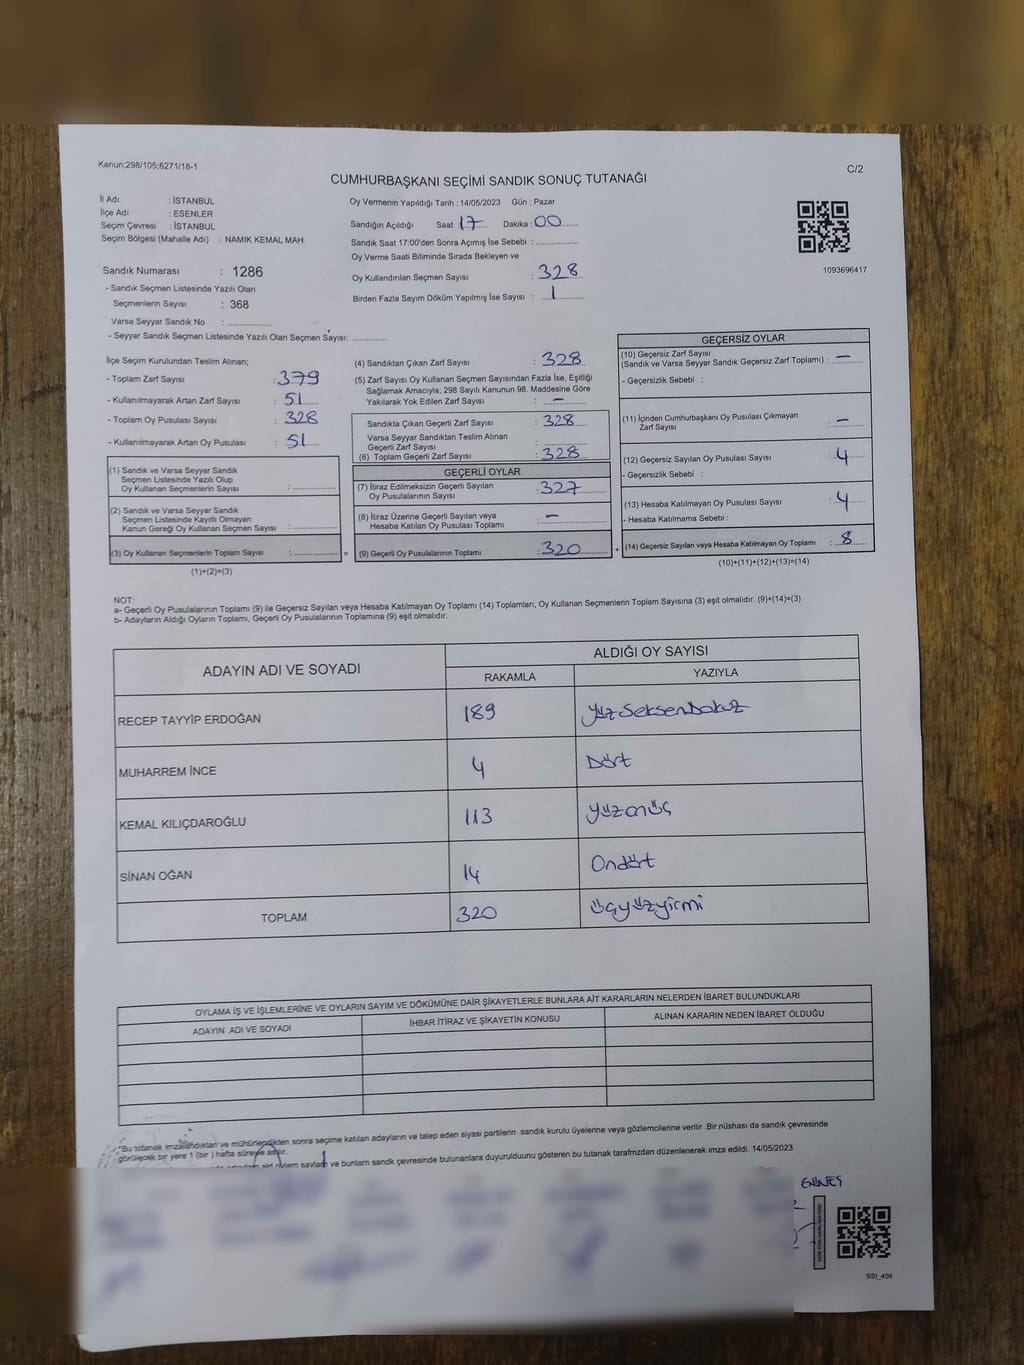 Kanun:298/105;6271/18-1
C/2
CUMHURBAŞKANI SEÇİMİ SANDIK SONUÇ TUTANAĞI
İl Adı : İSTANBUL
İlçe Adı : ESENLER
Seçim Çevresi : İSTANBUL
Seçim Bölgesi (Mahalle Adı) : NAMIK KEMAL MAH.
Sandık Numarası : 1286
- Sandık Seçmen Listesinde Yazılı Olan
Seçmenlerin Sayısı : 368
Varsa Seyyar Sandık No : ............
- Seyyar Sandık Seçmen Listesinde Yazılı Olan Seçmen Sayısı: ............
Oy Vermenin Yapıldığı Tarih : 14/05/2023 Gün : Pazar
Sandığın Açıldığı Saat : 17 Dakika : 00
Sandık Saat 17:00'den Sonra Açımış İse Sebebi : ............
Oy Verme Saati Bitiminde Sırada Bekleyen ve
Oy Kullandırılan Seçmen Sayısı : 328
Birden Fazla Sayım Döküm Yapılmış İse Sayısı : 1
1093696417
İlçe Seçim Kurulundan Teslim Alınan;
- Toplam Zarf Sayısı : 379
- Kullanılmayarak Artan Zarf Sayısı : 51
- Toplam Oy Pusulası Sayısı : 328
- Kullanılmayarak Artan Oy Pusulası : 51
(1) Sandık ve Varsa Seyyar Sandık
Seçmen Listesinde Yazılı Olup
Oy Kullanan Seçmenlerin Sayısı : ............
(2) Sandık ve Varsa Seyyar Sandık
Seçmen Listesinde Kayıtlı Olmayan
Kanun Gereği Oy Kullanan Seçmen Sayısı : ............
(3) Oy Kullanan Seçmenlerin Toplam Sayısı : ............ =
(1)+(2)=(3)
(4) Sandıktan Çıkan Zarf Sayısı : 328
(5) Zarf Sayısı Oy Kullanan Seçmen Sayısından Fazla İse, Eşitliği
Sağlamak Amacıyla; 298 Sayılı Kanunun 98. Maddesine Göre
Yakılarak Yok Edilen Zarf Sayısı : –
Sandıkta Çıkan Geçerli Zarf Sayısı : 328
Varsa Seyyar Sandıktan Teslim Alınan
Geçerli Zarf Sayısı : ............
(6) Toplam Geçerli Zarf Sayısı : 328
GEÇERLİ OYLAR
(7) İtiraz Edilmeksizin Geçerli Sayılan
Oy Pusulalarının Sayısı : 327
(8) İtiraz Üzerine Geçerli Sayılan veya
Hesaba Katılan Oy Pusulası Toplamı : –
(9) Geçerli Oy Pusulalarının Toplamı : 320 +
GEÇERSİZ OYLAR
(10) Geçersiz Zarf Sayısı
(Sandık ve Varsa Seyyar Sandık Geçersiz Zarf Toplamı) : –
- Geçersizlik Sebebi :
(11) İçinden Cumhurbaşkanı Oy Pusulası Çıkmayan
Zarf Sayısı : –
(12) Geçersiz Sayılan Oy Pusulası Sayısı : 4
- Geçersizlik Sebebi :
(13) Hesaba Katılmayan Oy Pusulası Sayısı : 4
- Hesaba Katılmama Sebebi :
(14) Geçersiz Sayılan veya Hesaba Katılmayan Oy Toplamı : 8
(10)+(11)+(12)+(13)=(14)
NOT:
a- Geçerli Oy Pusulalarının Toplamı (9) ile Geçersiz Sayılan veya Hesaba Katılmayan Oy Toplamı (14) Toplamları, Oy Kullanan Seçmenlerin Toplam Sayısına (3) eşit olmalıdır. (9)+(14)=(3)
b- Adayların Aldığı Oyların Toplamı, Geçerli Oy Pusulalarının Toplamına (9) eşit olmalıdır.
ADAYIN ADI VE SOYADI ALDIĞI OY SAYISI
RAKAMLA YAZIYLA
RECEP TAYYİP ERDOĞAN 189 YüzSeksenDokuz
MUHARREM İNCE 4 Dört
KEMAL KILIÇDAROĞLU 113 Yüzonüç
SİNAN OĞAN 14 Ondört
TOPLAM 320 üçyüzyirmi
OYLAMA İŞ VE İŞLEMLERİNE VE OYLARIN SAYIM VE DÖKÜMÜNE DAİR ŞİKAYETLERLE BUNLARA AİT KARARLARIN NELERDEN İBARET BULUNDUKLARI
ADAYIN ADI VE SOYADI İHBAR İTİRAZ VE ŞİKAYETİN KONUSU ALINAN KARARIN NEDEN İBARET OLDUĞU
*Bu tutanak imzalandıktan ve mühürlendikten sonra seçime katılan adayların ve talep eden siyasi partilerin sandık kurulu üyelerine veya gözlemcilerine verilir .Bir nüshası da sandık çevresinde
görülecek bir yere 1 (bir ) hafta süreyle asılır.
oyların sayısını ve bunların sandık çevresinde bulunanlara duyurulduunu gösteren bu tutanak tarafmzdan düzenlenerek imza edildi. 14/05/2023
SSI_404